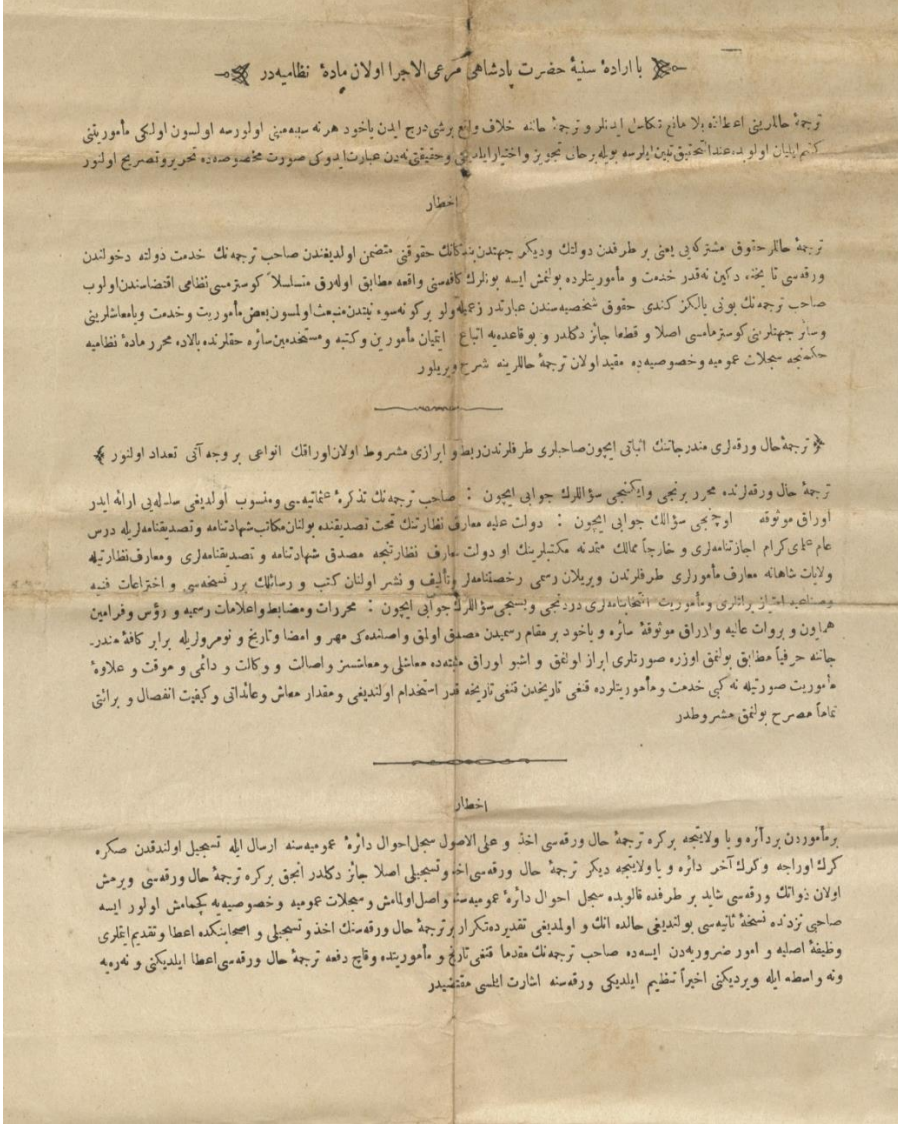 با ارادهٔ سنیهٔ حضرت پادشاهی مرعی الاجرا اولان مادهٔ نظامیه در
ترجمهٔ حاللرینی اعطاده بلا مانع تکاسل ایدنلر و ترجمهٔ حالنه خلاف واقع برشی درج ایدن یاخود هر نه سببه مبنی اولورسه اولسون اولکی مأموریتنی
کتم ایلیان اولوبده عند التحقیق تبین ایلرسه بویله بر حالی تجویز و اختیار ایلدیکی و حقیقتی نه دن عبارت ایدوکی صورت مخصوصه ده تحریر و تصریح اولنور
اخطار
ترجمهٔ حاللر حقوق مشترکه یی یعنی بر طرفدن دولتك و دیکر جهتدن بندکانك حقوقنی متضمن اولدیغندن صاحب ترجمه نك خدمت دولته دخولندن
ورقه سی تاریخنه دکین نه قدر خدمت و مأموریتلرده بولنمش ایسه بونلرك کافه سنی واقعه مطابق اوله رق متسلسلاً کوسترمسی نظامی اقتضاسندن اولوب
صاحب ترجمه نك بونی یالکز کندی حقوق شخصیه سندن عبارتدر زعمیله ولو بر کونه سوء نیتدن منبعث اولمسون بعض مأموریت و خدمت و یا معاشلرینی
و سائر جهتلرینی کوسترمامسی اصلا و قطعا جائز دکلدر و بو قاعده یه اتباع ایتمیان مأمورین و کتبه و مستخدمین سائره حقلرنده بالاده محرر مادهٔ نظامیه
حکمنجه سجلات عمومیه و خصوصیه ده مقید اولان ترجمهٔ حاللرینه شرح ویریلور
ترجمهٔ حال ورقه لری مندرجاتنك اثباتی ایچون صاحبلری طرفلرندن ربط و ابرازی مشروط اولان اوراقك انواعی بر وجه آتی تعداد اولنور
ترجمهٔ حال ورقه لرنده محرر برنجی و ایکنجی سؤاللرك جوابی ایچون : صاحب ترجمه نك تذکرهٔ عثمانیه سی و منسوب اولدیغی سلاله یی ارائه ایدر
اوراق موثوقه اوچنجی سؤالك جوابی ایچون : دولت علیه معارف نظارتنك تحت تصدیقنده بولنان مکاتب شهادتنامه و تصدیقنامه لریله درس
عام علمای کرام اجازتنامه لری و خارجاً ممالك متمدنه مکتبلرینك او دولت معارف نظارتنجه مصدق شهادتنامه و تصدیقنامه لری و معارف نظارتیله
ولایات شاهانه معارف مأمورلری طرفلرندن ویریلان رسمی رخصتنامه لر و تألیف و نشر اولنان کتب و رسائلك بر نسخه سی و اختراعات فنیه
و صناعیه امتیاز براتلری و مأموریت انتخابنامه لری دردنجی و بشنجی سؤاللرك جوابی ایچون : محررات و مضابط و اعلامات رسمیه و رؤس و فرامین
همایون و بروات عالیه و اوراق موثوقهٔ سائره و یاخود بر مقام رسمیدن مصدق اولمق و اصلنده کی مهر و امضا و تاریخ و نومرولریله برابر کافهٔ مندر
جاتنه حرفیاً مطابق بولنمق اوزره صورتلری ابراز اولنمق و اشبو اوراق مثبته ده معاشلی و معاشسز و اصالت و وکالت و دائمی و موقت و علاوهٔ
مأموریت صورتیله نه کبی خدمت و مأموریتلرده قنغی تاریخدن قنغی تاریخه قدر استخدام اولندیغی و مقدار معاش و عائداتی و کیفیت انفصال و برائتی
تماماً مصرح بولنمق مشروطدر
اخطار
بر مأموردن بر دائره و یا ولایتجه بر کره ترجمهٔ حال ورقه سی اخذ و علی الاصول سجل احوال دائرهٔ عمومیه سنه ارسال ایله تسجیل اولندقدن صکره
کرك اوراجه و کرك آخر دائره و یا ولایتجه دیکر ترجمهٔ حال ورقه سی اخذ و تسجیلی اصلا جائز دکلدر انجق بر کره ترجمهٔ حال ورقه سی ویرمش
اولان ذواتك ورقه سی شاید بر طرفده قالوبده سجل احوال دائرهٔ عمومیه سنه واصل اولمامش و سجلات عمومیه و خصوصیه یه کچمامش اولور ایسه
صاحبی نزدنده نسخهٔ ثانیه سی بولندیغی حالده انك و اولمدیغی تقدیرده تکرار بر ترجمهٔ حال ورقه سنك اخذ و تسجیلی و اصحابنکده اعطا و تقدیم ایتملری
وظیفهٔ اصلیه و امور ضروریه دن ایسه ده صاحب ترجمه نك مقدما قنغی تاریخ و مأموریتده و قاچ دفعه ترجمهٔ حال ورقه سی اعطا ایلدیکنی و نه ریه
و نه واسطه ایله ویردیکنی اخیراً تنظیم ایلدیکی ورقه سنه اشارت ایتمسی مقتضیدر